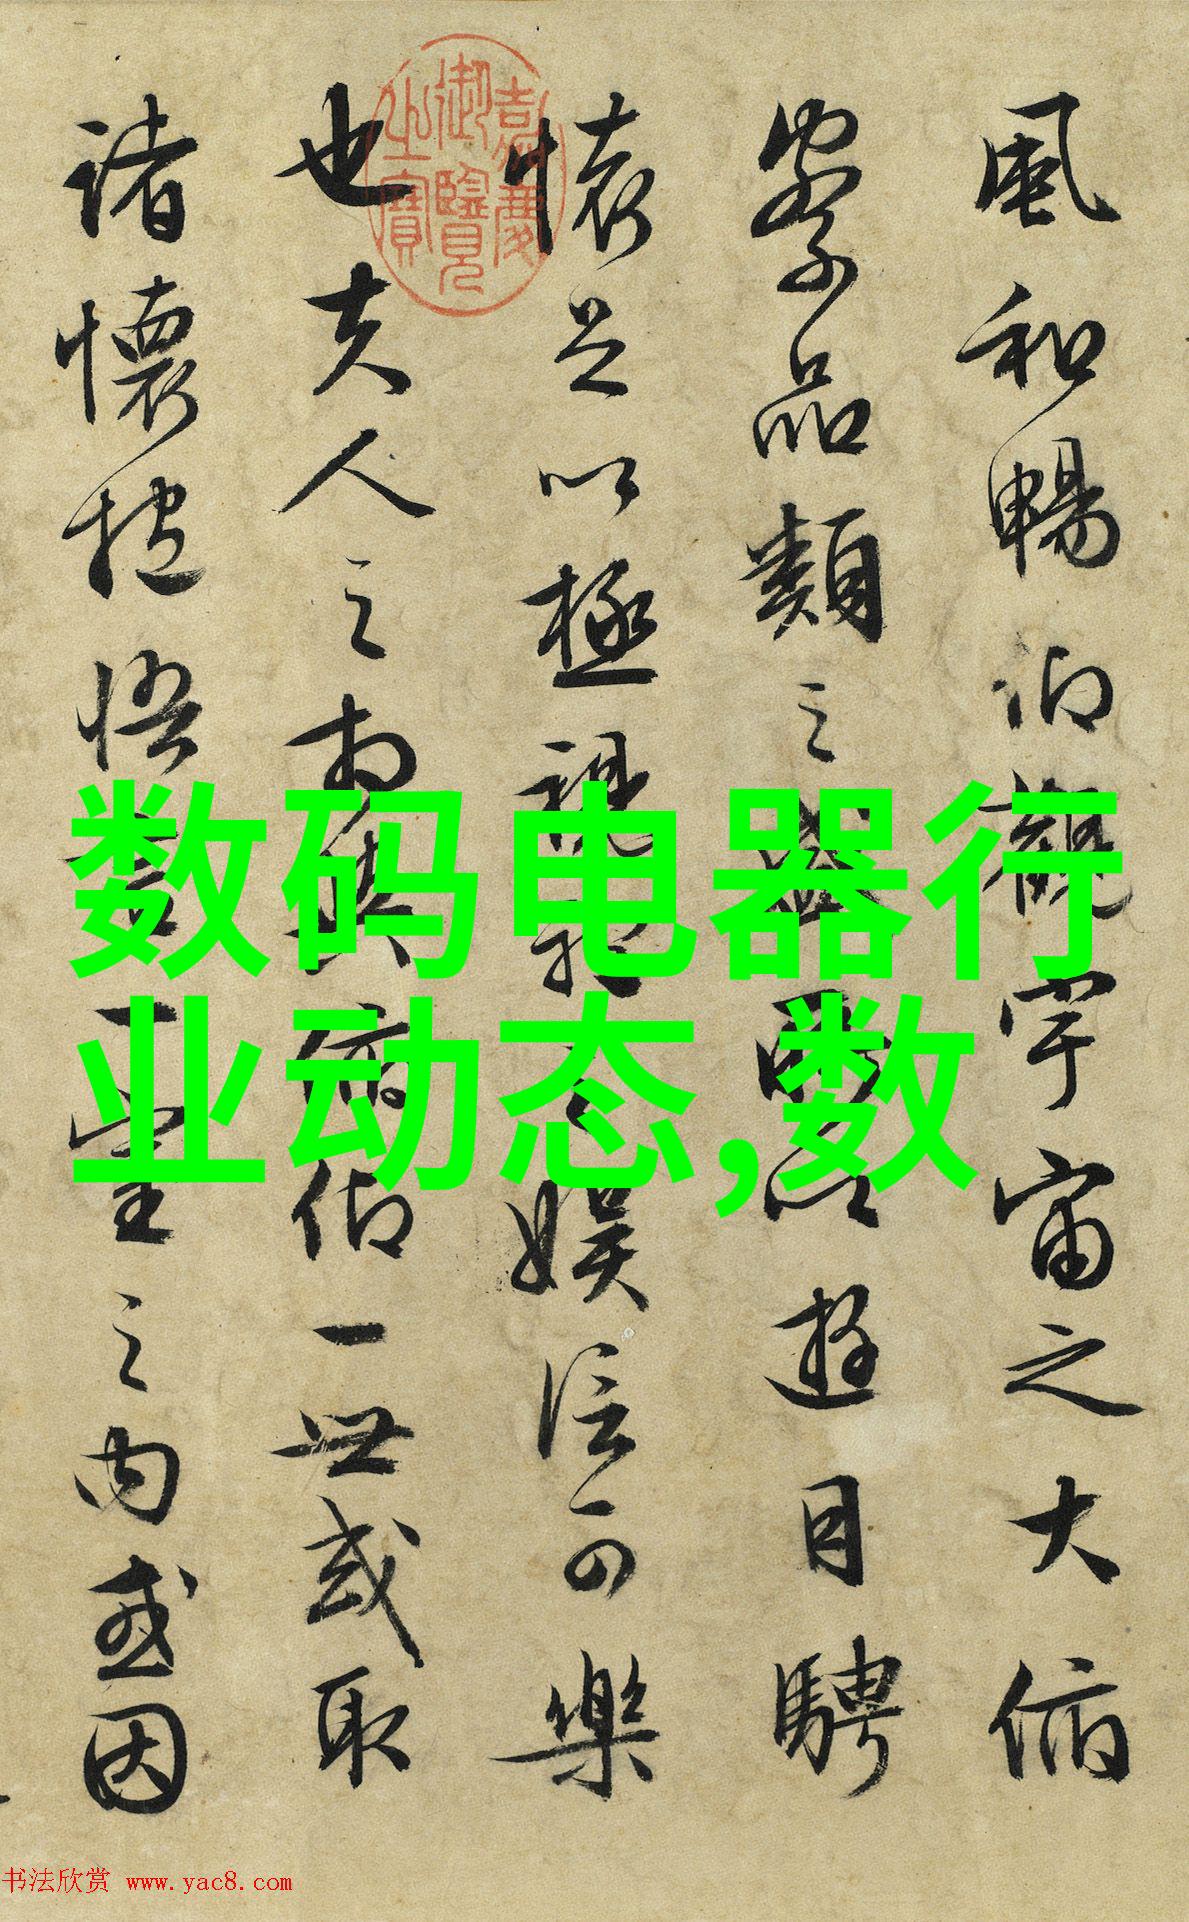 風和暢仰觀宇宙之大俯
察品類之盛所以遊目騁
懷足以極視聽之娛信可樂
也夫人之相與俯仰一世或取
諸懷抱悟言一室之內或因
嘉慶
御覽
之寶
数码电器行
业动态,数
书法欣赏 www.yac8.com